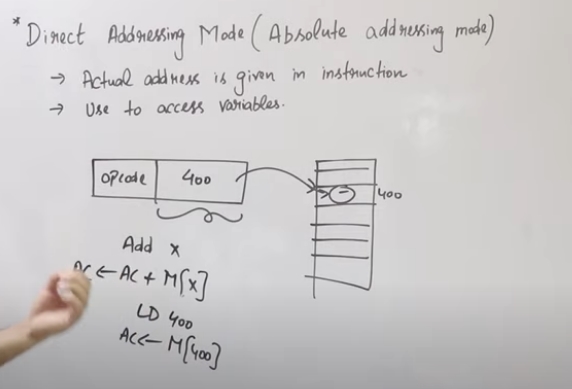 * Direct Addressing Mode (Absolute addressing mode)
→ Actual address is given in instruction
→ Use to access variables.
opcode 400
400
Add x
AC ← AC + M[x]
LD 400
AC ← M[400]